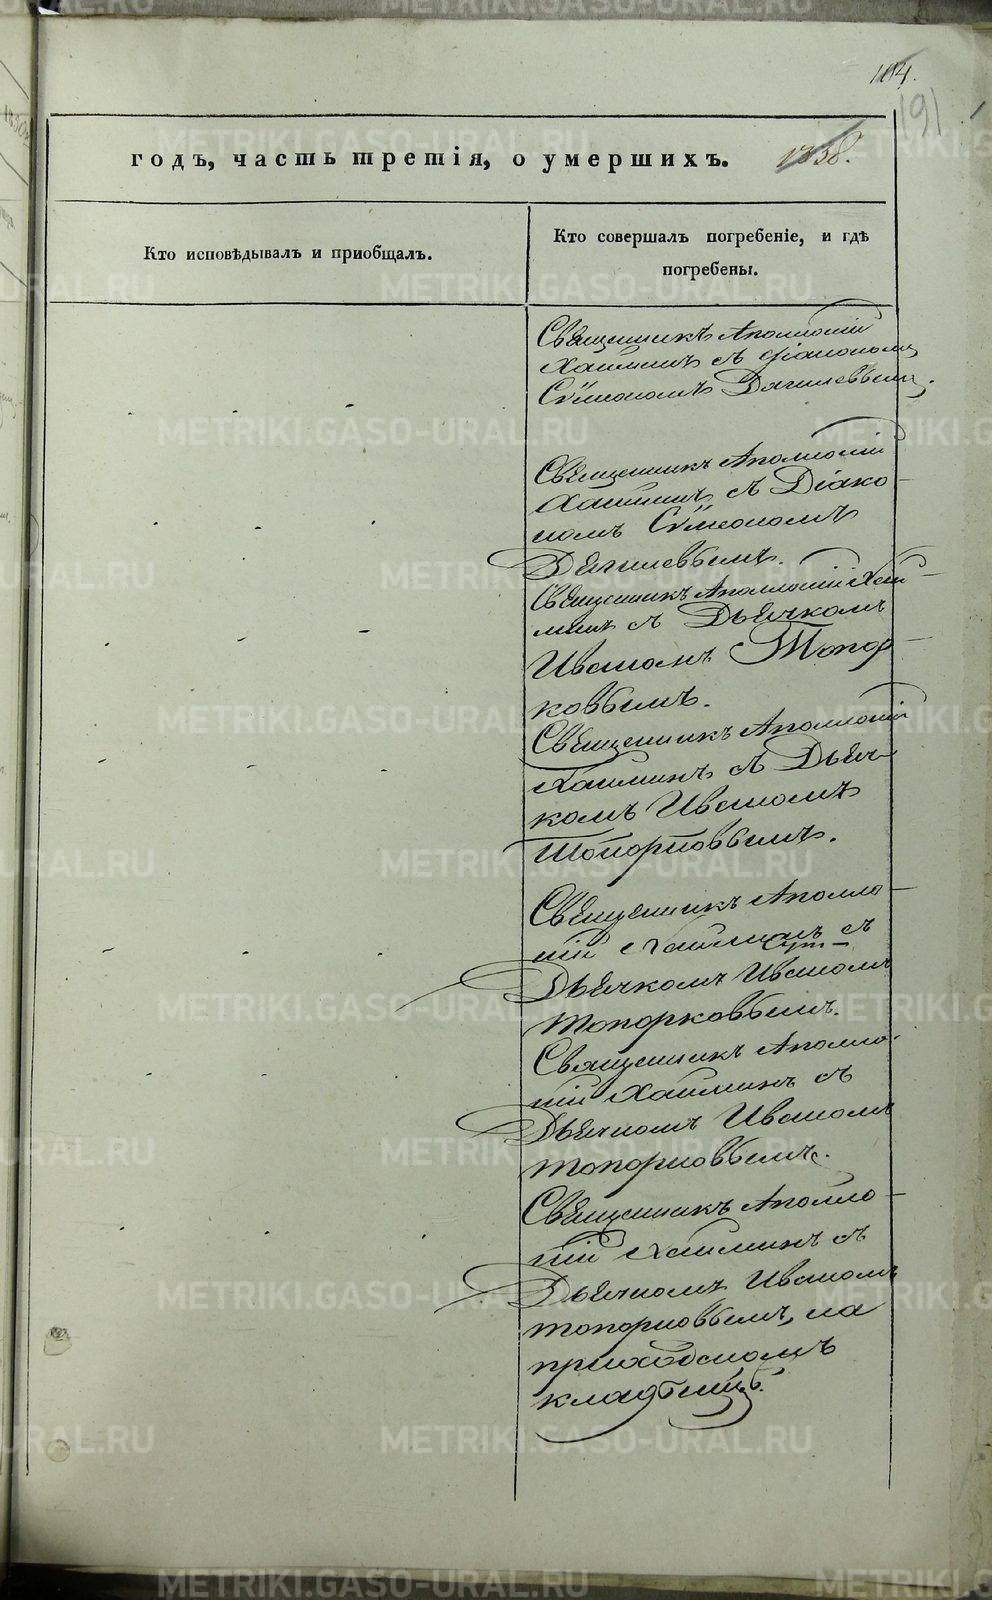 191
годъ, часть третія, о умершихъ.
Кто исповѣдывалъ и приобщалъ.
Кто совершалъ погребеніе, и гдѣ
погребены.
Священникъ Аполлоній
Хаминъ съ діакономъ
Сѵмеономъ Дягилевымъ.
Священникъ Аполлоній
Хаминъ съ Діако-
номъ Сѵмеономъ
Дягилевымъ.
Священникъ Аполлоній
съ Дьячкомъ
Иваномъ Топор-
ковымъ.
Священникъ Аполлоній
съ Дьяч-
комъ Иваномъ
Топорковымъ.
Священникъ Аполло-
ній съ
Дьячкомъ Иваномъ
Топорковымъ.
Священникъ Аполло-
ній съ
Дьячкомъ Иваномъ
Топорковымъ.
Священникъ Аполло-
ній съ
Дьячкомъ Иваномъ
Топорковымъ, на
приходскомъ
кладбищѣ.
METRIKI.GASO-URAL.RU